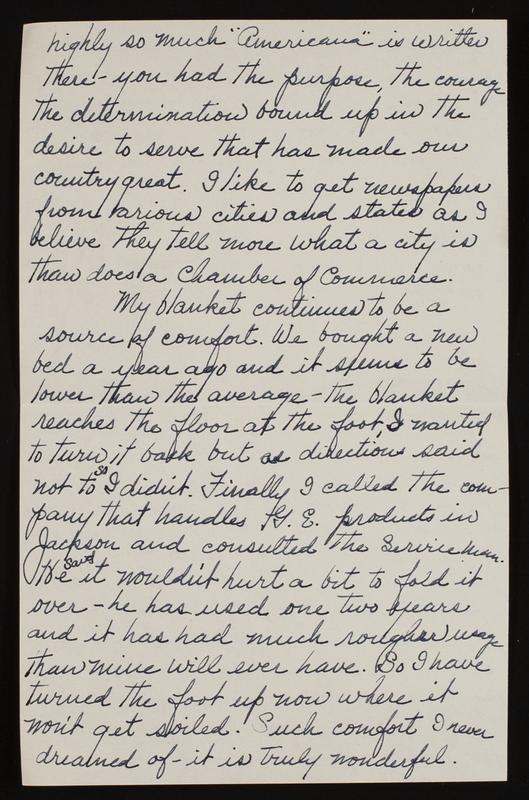 highly so much "Americana" is written
there - you had the purpose, the courage
the determination bound up in the
desire to serve that has made our
country great. I like to get newspapers
from various cities and states as I
believe they tell more what a city is
than does a Chamber of Commerce.
My blanket continues to be a
source of comfort. We bought a new
bed a year ago and it seems to be
lower than the average - the blanket
reaches the floor at the foot, I wanted
to turn it back but as directions said
not to so I didn't. Finally I called the com-
pany that handles G. E. products in
Jackson and consulted the Service man.
He said it wouldn't hurt a bit to fold it
over - he has used one two years
and it has had much rougher usage
than mine will ever have. So I have
turned the foot up now where it
won't get soiled. Such comfort I never
dreamed of - it is truly wonderful.